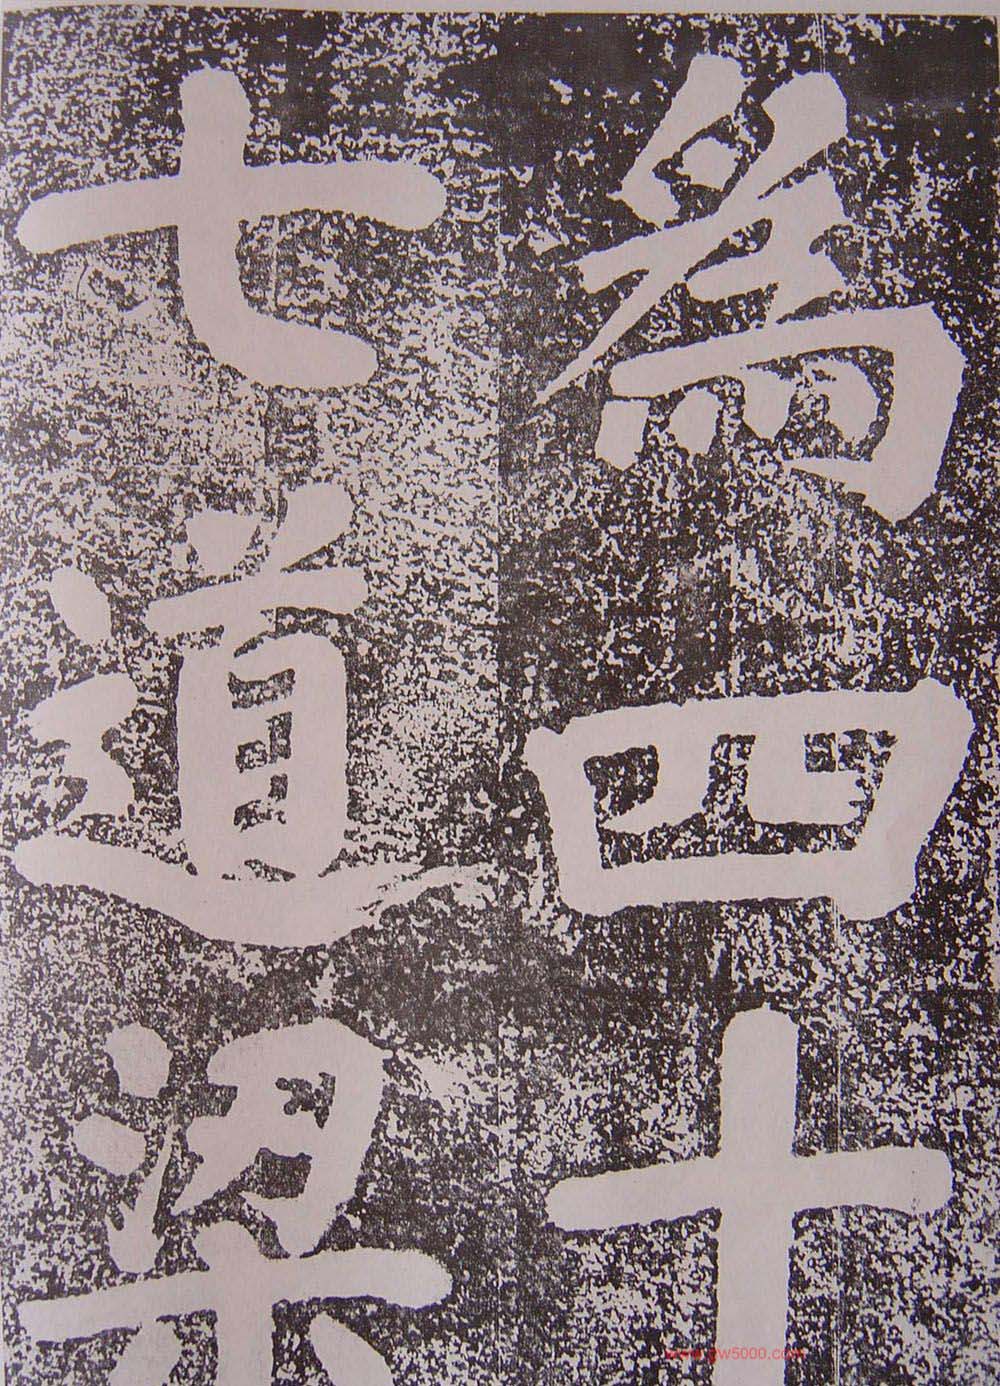 為四十
七道梁
www.gw5000.com